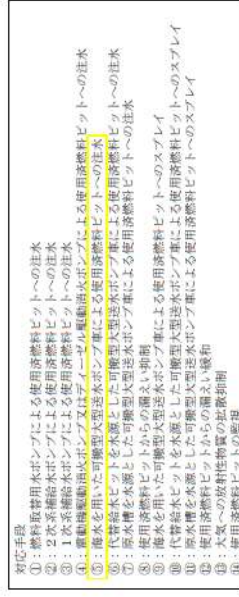 対応手段
①：燃料取替用水ポンプによる使用済燃料ピットへの注水
②：2次系補給水ポンプによる使用済燃料ピットへの注水
③：1次系補給水ポンプによる使用済燃料ピットへの注水
④：電動機駆動消火ポンプ又はディーゼル駆動消火ポンプによる使用済燃料ピットへの注水
⑤：海水を用いた可搬型大型送水ポンプ車による使用済燃料ピットへの注水
⑥：代替給水ピットを水源とした可搬型大型送水ポンプ車による使用済燃料ピットへの注水
⑦：原水槽を水源とした可搬型大型送水ポンプ車による使用済燃料ピットへの注水
⑧：使用済燃料ピットからの漏えい抑制
⑨：海水を用いた可搬型大型送水ポンプ車による使用済燃料ピットへのスプレイ
⑩：代替給水ピットを水源とした可搬型大型送水ポンプ車による使用済燃料ピットへのスプレイ
⑪：原水槽を水源とした可搬型大型送水ポンプ車による使用済燃料ピットへのスプレイ
⑫：使用済燃料ピットからの漏えい緩和
⑬：大気への放射性物質の拡散抑制
⑭：使用済燃料ピットの監視